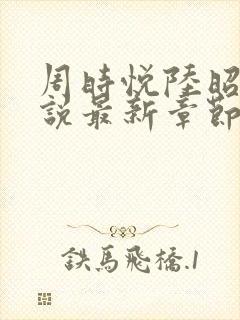 周時悅陸昭
說最新章節
鉄馬飛橋.1